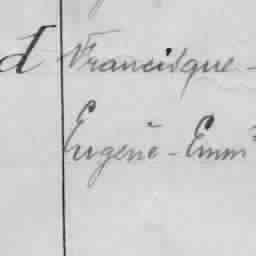 d Francisque -
Eugène - Emm